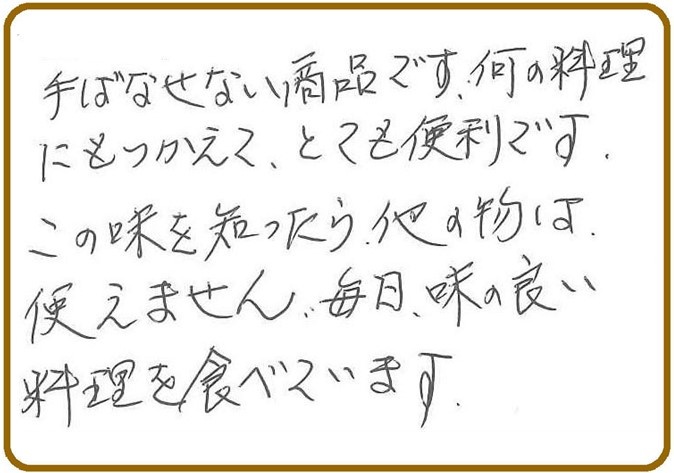 手ばなせない商品です、何の料理
にもつかえて、とても便利です.
この味を知ったら、他の物は.
使えません、毎日、味の良い
料理を食べています.